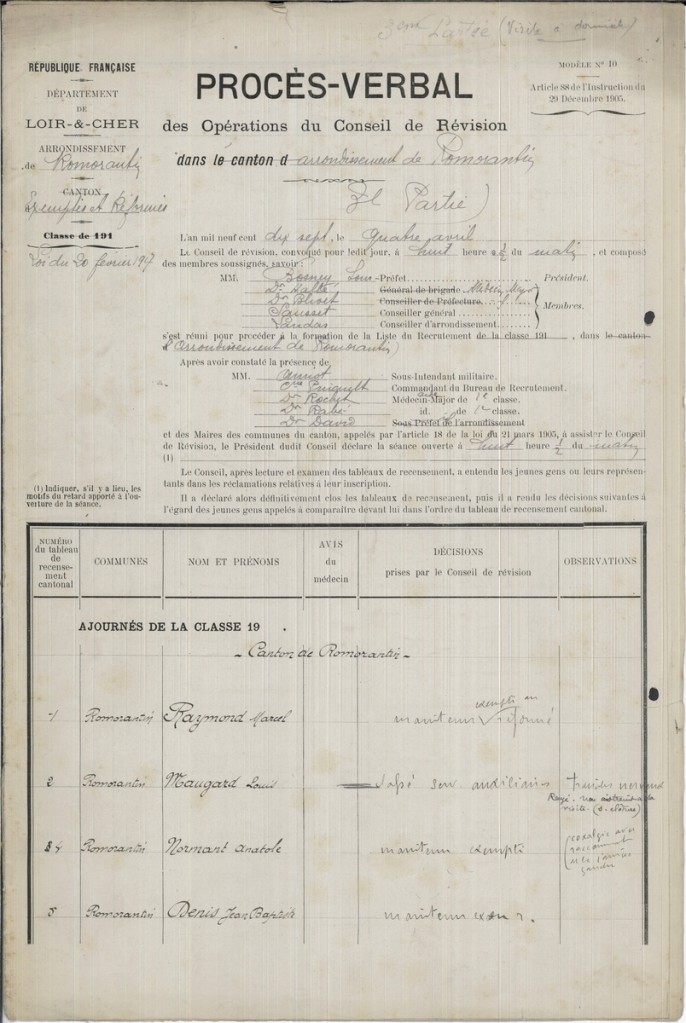 3eme Partie (Visite à domicile)
RÉPUBLIQUE FRANÇAISE
DÉPARTEMENT
DE
LOIR-&-CHER
ARRONDISSEMENT
de Romorantin
CANTON
Exemptés et Réformés
Classe de 191
Loi du 20 février 1917
MODÈLE N° 10
Article 88 de l'Instruction du
29 Décembre 1905.
PROCÈS-VERBAL
des Opérations du Conseil de Révision
dans le canton d arrondissement de Romorantin
3e Partie)
L'an mil neuf cent dix sept, le quatre avril
Le Conseil de révision, convoqué pour ledit jour, à huit heure s ½ du matin, et composé
des membres soussignés, savoir :
MM. Louis Préfet. Président.
Dr Général de brigade Médecin Major
Dr Conseiller de Préfecture Membres.
Sausset Conseiller général
Landas Conseiller d'arrondissement
s'est réuni pour procéder à la formation de la Liste du Recrutement de la classe 191 , dans le canton
d'arrondissement de Romorantin
Après avoir constaté la présence de
MM. Sous-Intendant militaire.
Commandant du Bureau de Recrutement.
Dr Médecin-Major de 1e classe.
Dr id. de 1re classe.
Dr David Sous Préfet de l'arrondissement
et des Maires des communes du canton, appelés par l'article 18 de la loi du 21 mars 1905, à assister le Conseil
de Révision, le Président dudit Conseil déclare la séance ouverte à huit heure ½ du matin
(1)
Le Conseil, après lecture et examen des tableaux de recensement, a entendu les jeunes gens ou leurs représen-
tants dans les réclamations relatives à leur inscription.
Il a déclaré alors définitivement clos les tableaux de recensement, puis il a rendu les décisions suivantes à
l'égard des jeunes gens appelés à comparaître devant lui dans l'ordre du tableau de recensement cantonal.
(1) Indiquer, s'il y a lieu, les
motifs du retard apporté à l'ou-
verture de la séance.
NUMÉRO
du tableau
de
recense-
ment
cantonal
COMMUNES
NOM ET PRÉNOMS
AVIS
du
médecin
DÉCISIONS
prises par le Conseil de révision
OBSERVATIONS
AJOURNÉS DE LA CLASSE 19 .
- Canton de Romorantin -
1 Romorantin Raymond Marcel maintenu exempté ou réformé
2 Romorantin Maugard Louis classé serv. auxiliaire
4 Romorantin Normant Anatole maintenu exempté
5 Romorantin Denis Jean Baptiste maintenu exempt.